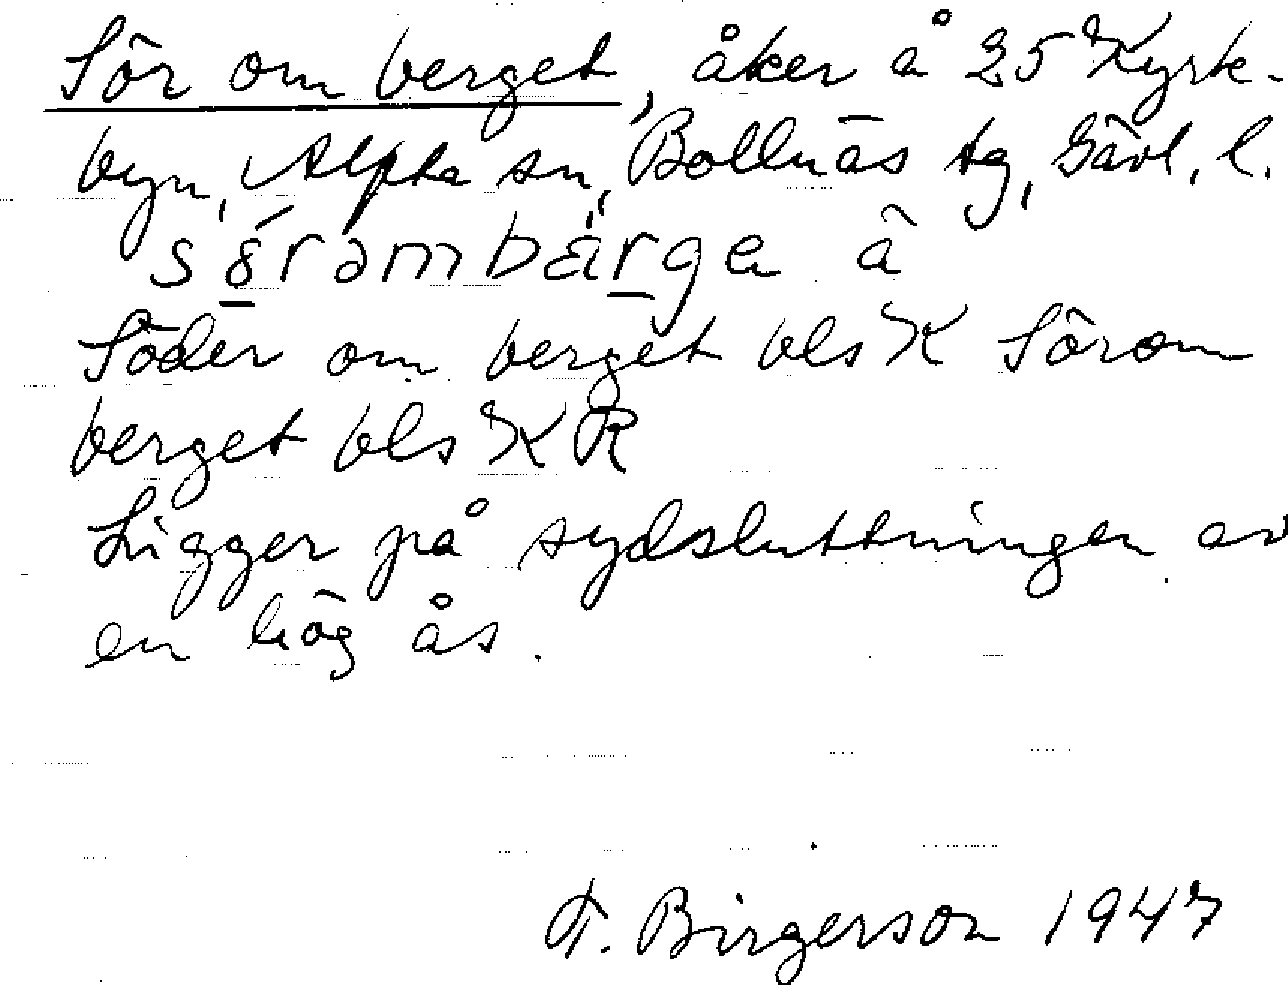 Sör om berget, åker å 25 Kyrk-
byn, Alfta sn, Bollnäs tg, Gävl. l.
sö́rombärge â
Söder om berget bls K Sörom
berget bls K R
Ligger på sydsluttningen av
en hög ås.
F. Birgerson 1947